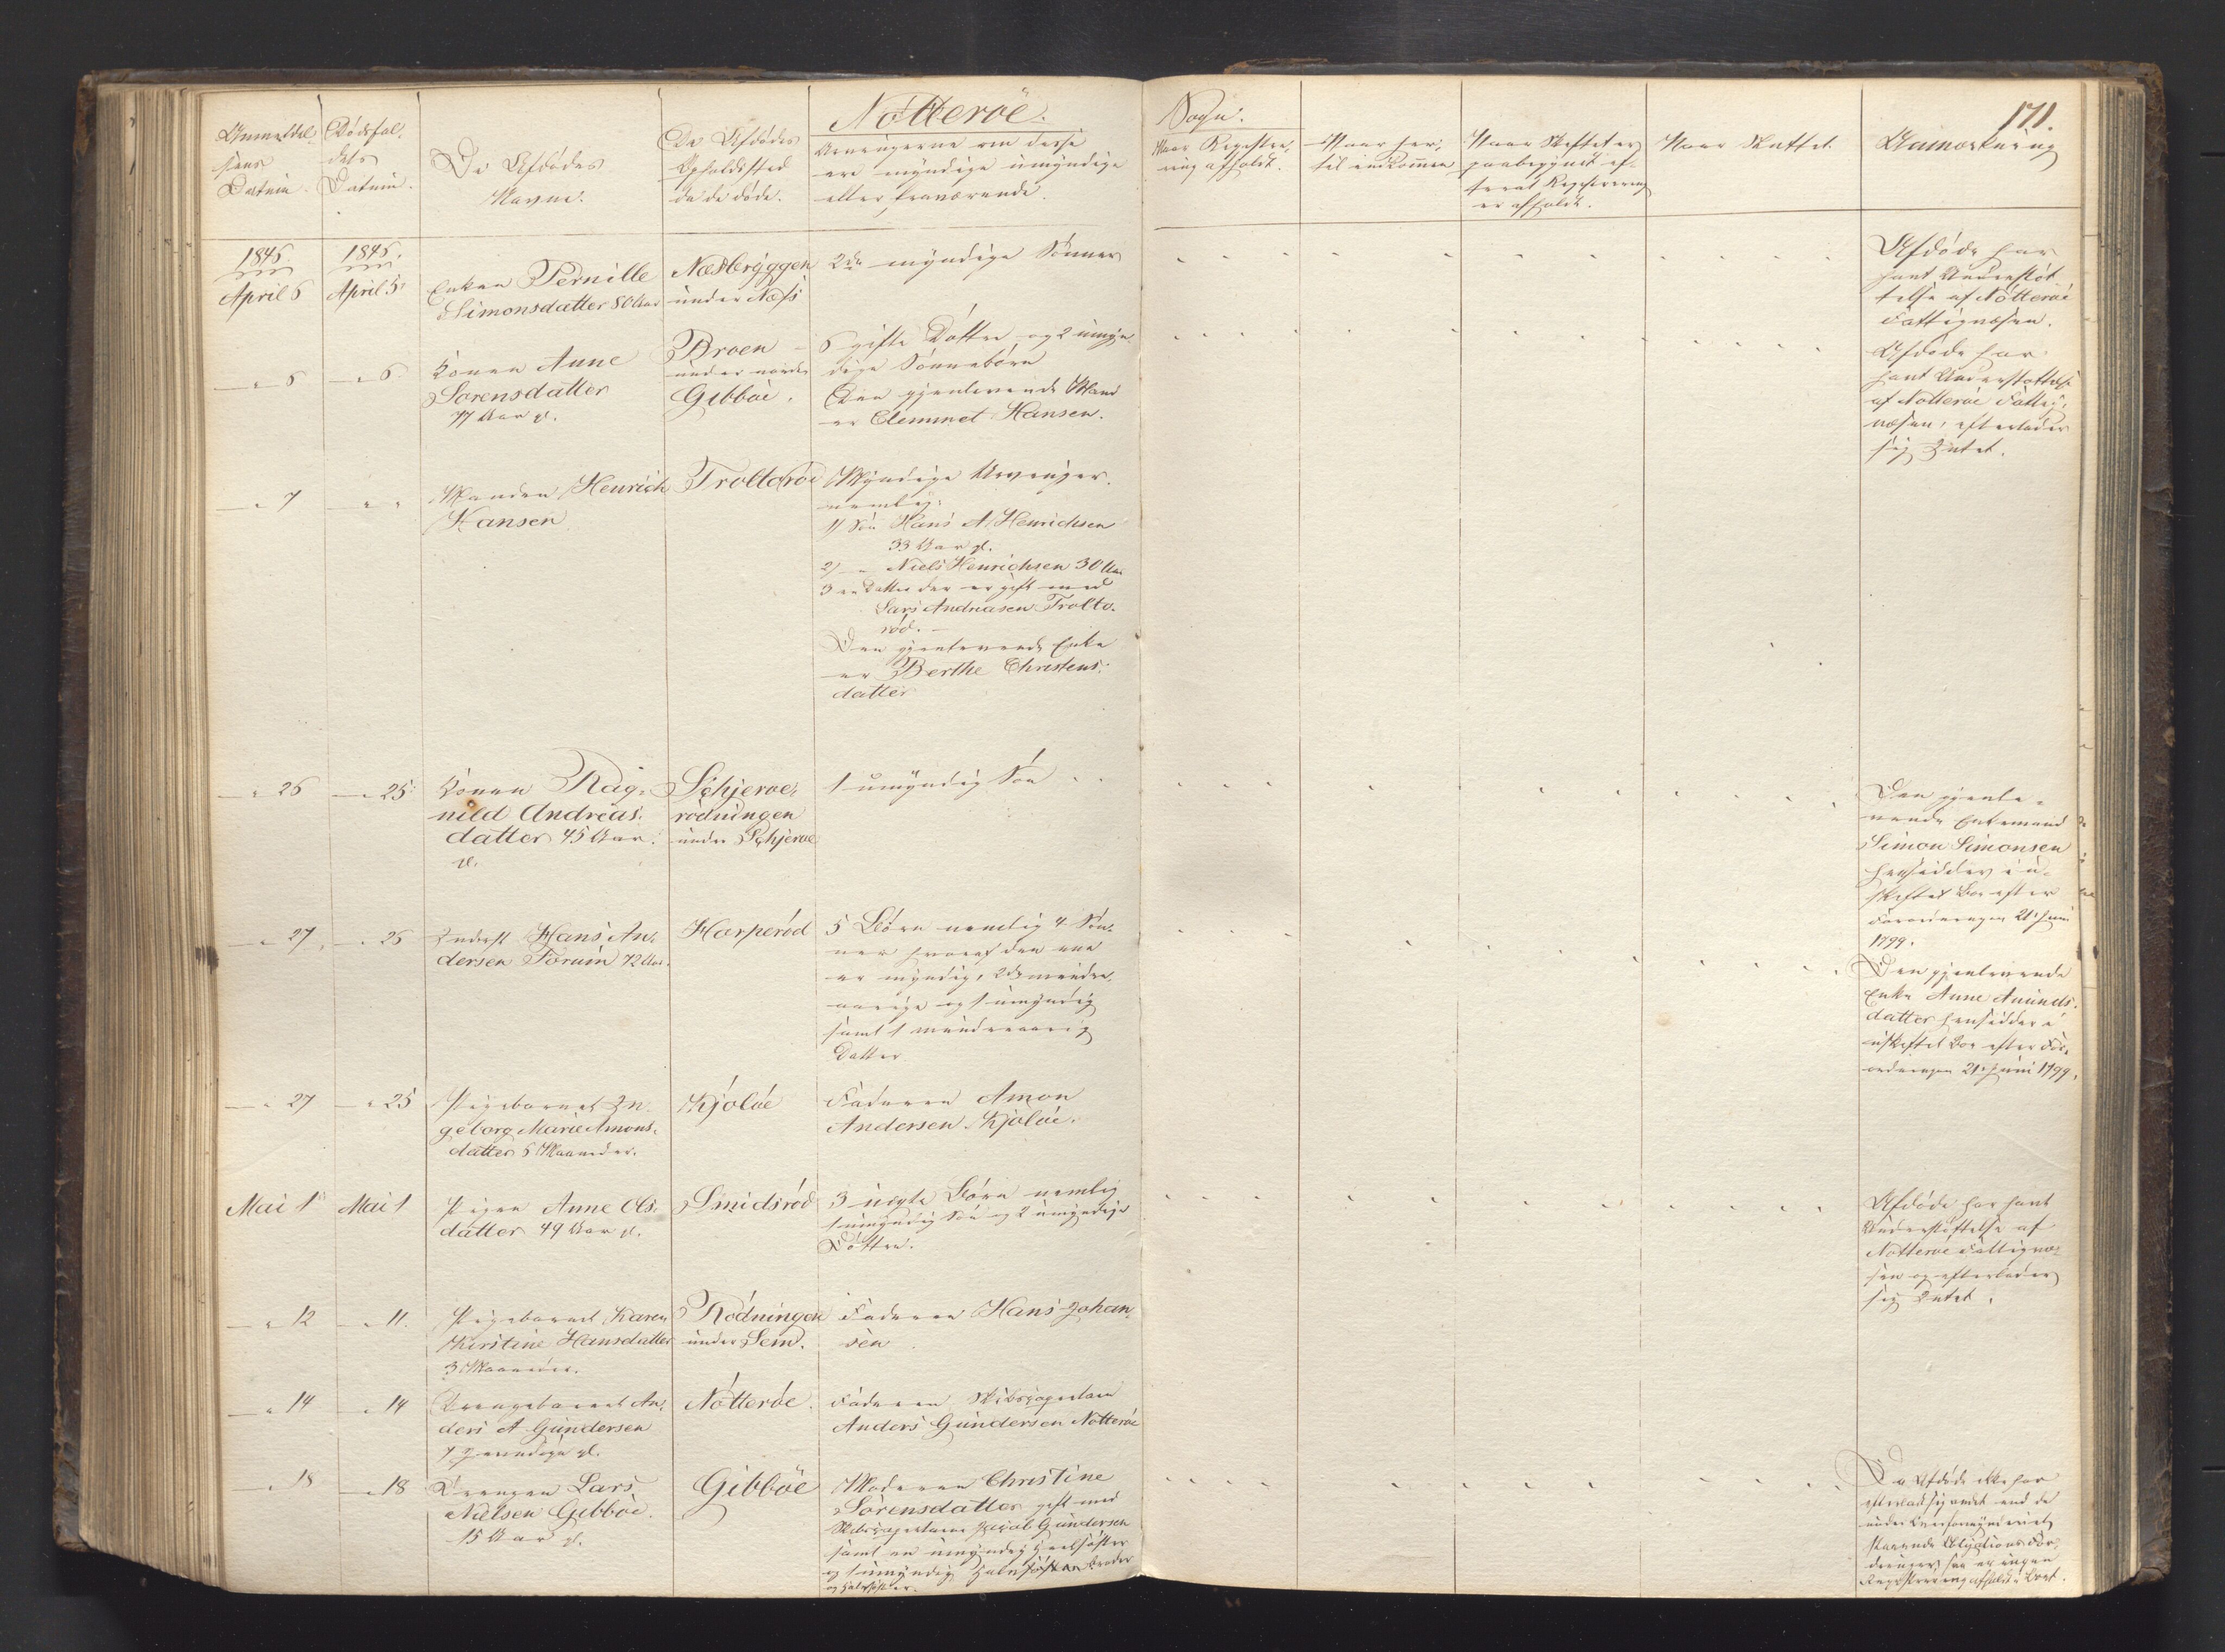 Nötteröe.
Sogn.
171.
Anmeldel-
sens
Datum.
Dødsfal-
dets
Datum.
De Afdödes
Navne.
De Afdödes
Opholdssted
da de döde.
Arvingerne om disse
ere myndige umyndige
eller fraværende.
Naar Registre-
ring afholdt.
Naar her-
til indkommen
Naar Skiftet er
paabegyndt ef-
terat Registrering
er afholdt.
Naar Sluttet
Anmærkning
1846.
April 6
1846.
April 5
Enken Pernille
Simonsdatter 80 Aar
Næsbryggen
under Næss
2de myndige Sönner
Afdöde har
havt Understöt-
telse af Nötteröe
Fattigvæsen.
" 6
" 6
Konen Anne
Sorensdatter
77 Aar gl.
Broen
under nordre
Gibböe.
6 gifte Döttre og 2 umyn-
dige Sönnebörn
Den gjenlevende Mand
er Clemmet Hansen.
Afdöde har
havt Understöttelse
af Nötteröe Fattig-
væsen, efterlader
sig Intet.
" 7
" "
Manden Henrich
Hansen
Troltoröe
Myndige Arvinger.
nemlig:
1) Sön Hans A. Henrichsen
33 Aar gl.
2) " Niels Henrichsen 30 Aar
3 en Datter der er gift med
Lars Andreasen Trolto-
röd.
Den gjenlevende Enke
er Berthe Christens-
datter
" 26
" 25
Konen Rag-
nild Andreas-
datter 45 Aar
gl.
Schjeroe-
rödningen
under Schjeroe
1 umyndig Sön
Den gjenle-
vende Enkemand
Simon Simonsen
hensidder i u-
skiftet Bo efter
Forordningen 21 Juni
1799.
" 27
" 26
Inderst Hans An-
dersen Forum 72 Aar
Harperöd
5 Börn nemlig 4 Sön-
ner hvoraf den ene
er myndig, 2de mindre-
aarige og 1 umyndig
samt 1 mindreaarig
Datter
Den gjenlevende
Enke Anne Amunds-
datter hensidder i
uskiftet Bo efter For-
ordningen 21 Juni 1799.
" 27
" 25
Pigebarnet In-
geborg Marie Amons-
datter 5 Maaneder.
Kjöløe
Faderen Amon
Andersen Kjöløe.
Mai 1
Mai 1
Pigen Anne Ols-
datter 49 Aar gl.
Smidsröd
3 uægte Börn nemlig
1 umyndig Sön og 2 umyndige
Döttre.
Afdöde har havt
Understöttelse af
Nötteröe Fattigvæ-
sen og efterlader
sig Intet.
" 12
" 11.
Pigebarnet Karen
Kirstine Hansdatter
3 Maaneder.
Rödningen
under Sem.
Faderen Hans Johan-
sen
" 14
" 14
Drengebarnet An-
ders A Gundersen
gl.
Nötteröe.
Faderen Skibscapitain
Anders Gundersen Nötteröe
" 18
" 18
Drengen Lars
Nielsen Gibböe.
15 Aar gl.
Gibböe
Moderen Christine
Sörensdatter gift med
Skibscapitain Jacob Gundersen
samt en umyndig Heelsöster
og 1 umyndig Halvbroder
og Halvsöster.
Da Afdöde ikke har
efterladt sig andet end de
under Overformynderiet
staaende Obligations For-
dringer, saa er ingen
Registrering afholdt i Boet.